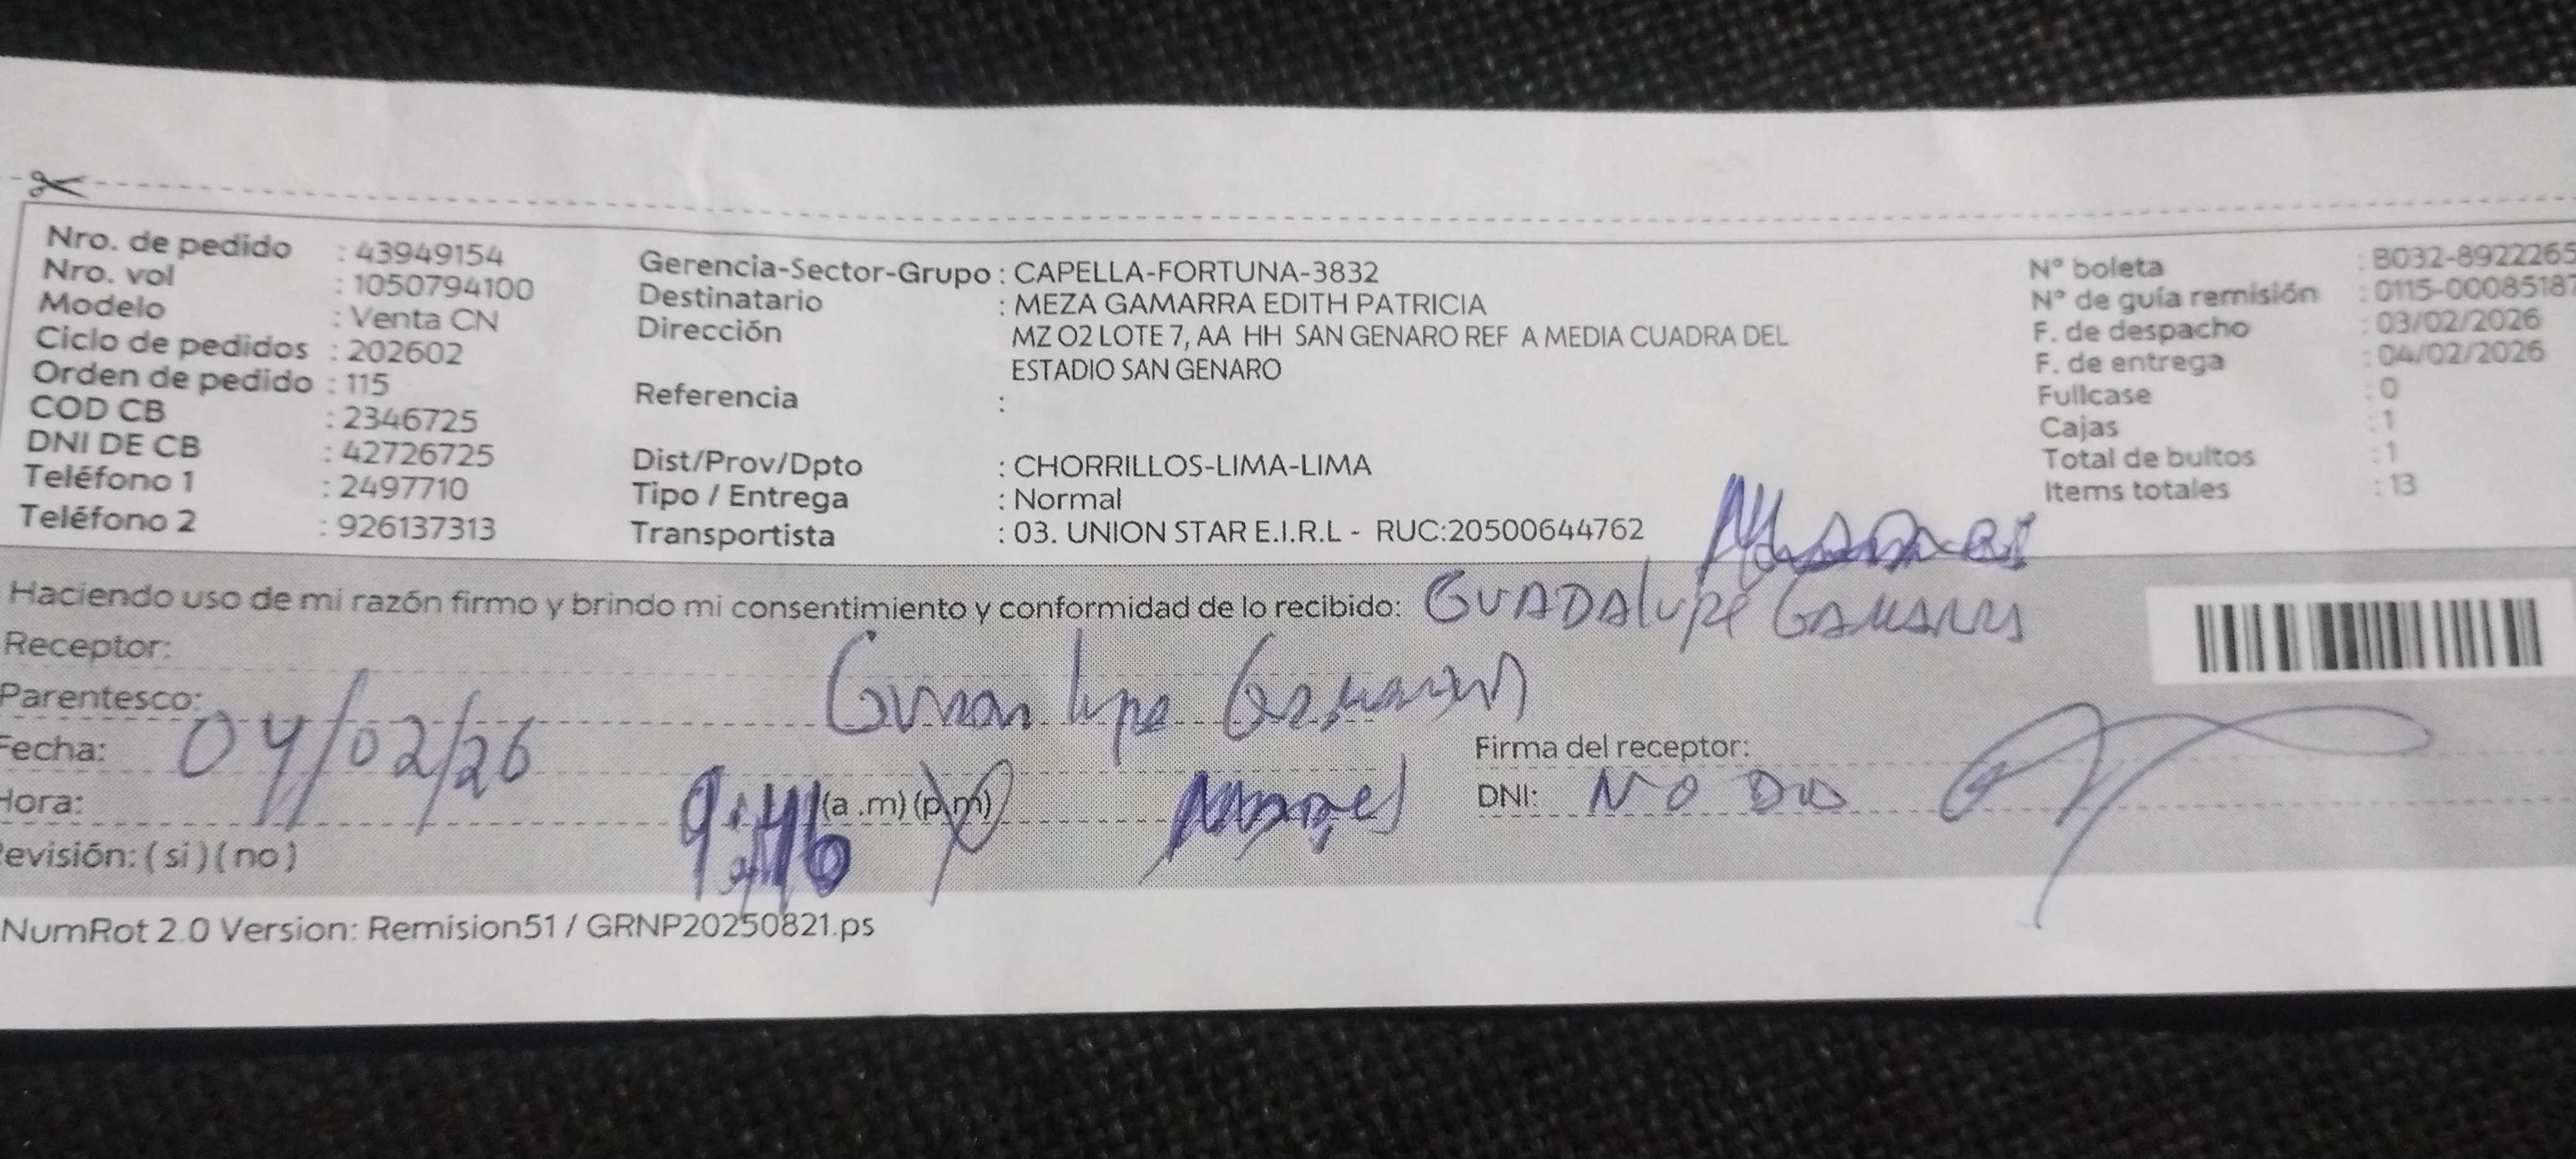 Nro. de pedido : 43949154
Nro. vol : 1050794100
Modelo : Venta CN
Ciclo de pedidos : 202602
Orden de pedido : 115
COD CB : 2346725
DNI DE CB : 42726725
Teléfono 1 : 2497710
Teléfono 2 : 926137313
Gerencia-Sector-Grupo : CAPELLA-FORTUNA-3832
Destinatario : MEZA GAMARRA EDITH PATRICIA
Dirección MZ O2 LOTE 7, AA HH SAN GENARO REF A MEDIA CUADRA DEL
ESTADIO SAN GENARO
Referencia :
Dist/Prov/Dpto : CHORRILLOS-LIMA-LIMA
Tipo / Entrega : Normal
Transportista : 03. UNION STAR E.I.R.L - RUC:20500644762
N° boleta : B032-8922265
N° de guía remisión : 0115-00085187
F. de despacho : 03/02/2026
F. de entrega : 04/02/2026
Fullcase : 0
Cajas : 1
Total de bultos : 1
Items totales : 13
Haciendo uso de mi razón firmo y brindo mi consentimiento y conformidad de lo recibido: GUADAlupe GAMARRA
Receptor:
Parentesco:
Fecha: 04/02/26
Firma del receptor:
Hora: 9:46 (a .m) (p.m)
DNI: NO DIO
Revisión: ( si ) ( no )
NumRot 2.0 Version: Remision51 / GRNP20250821.ps